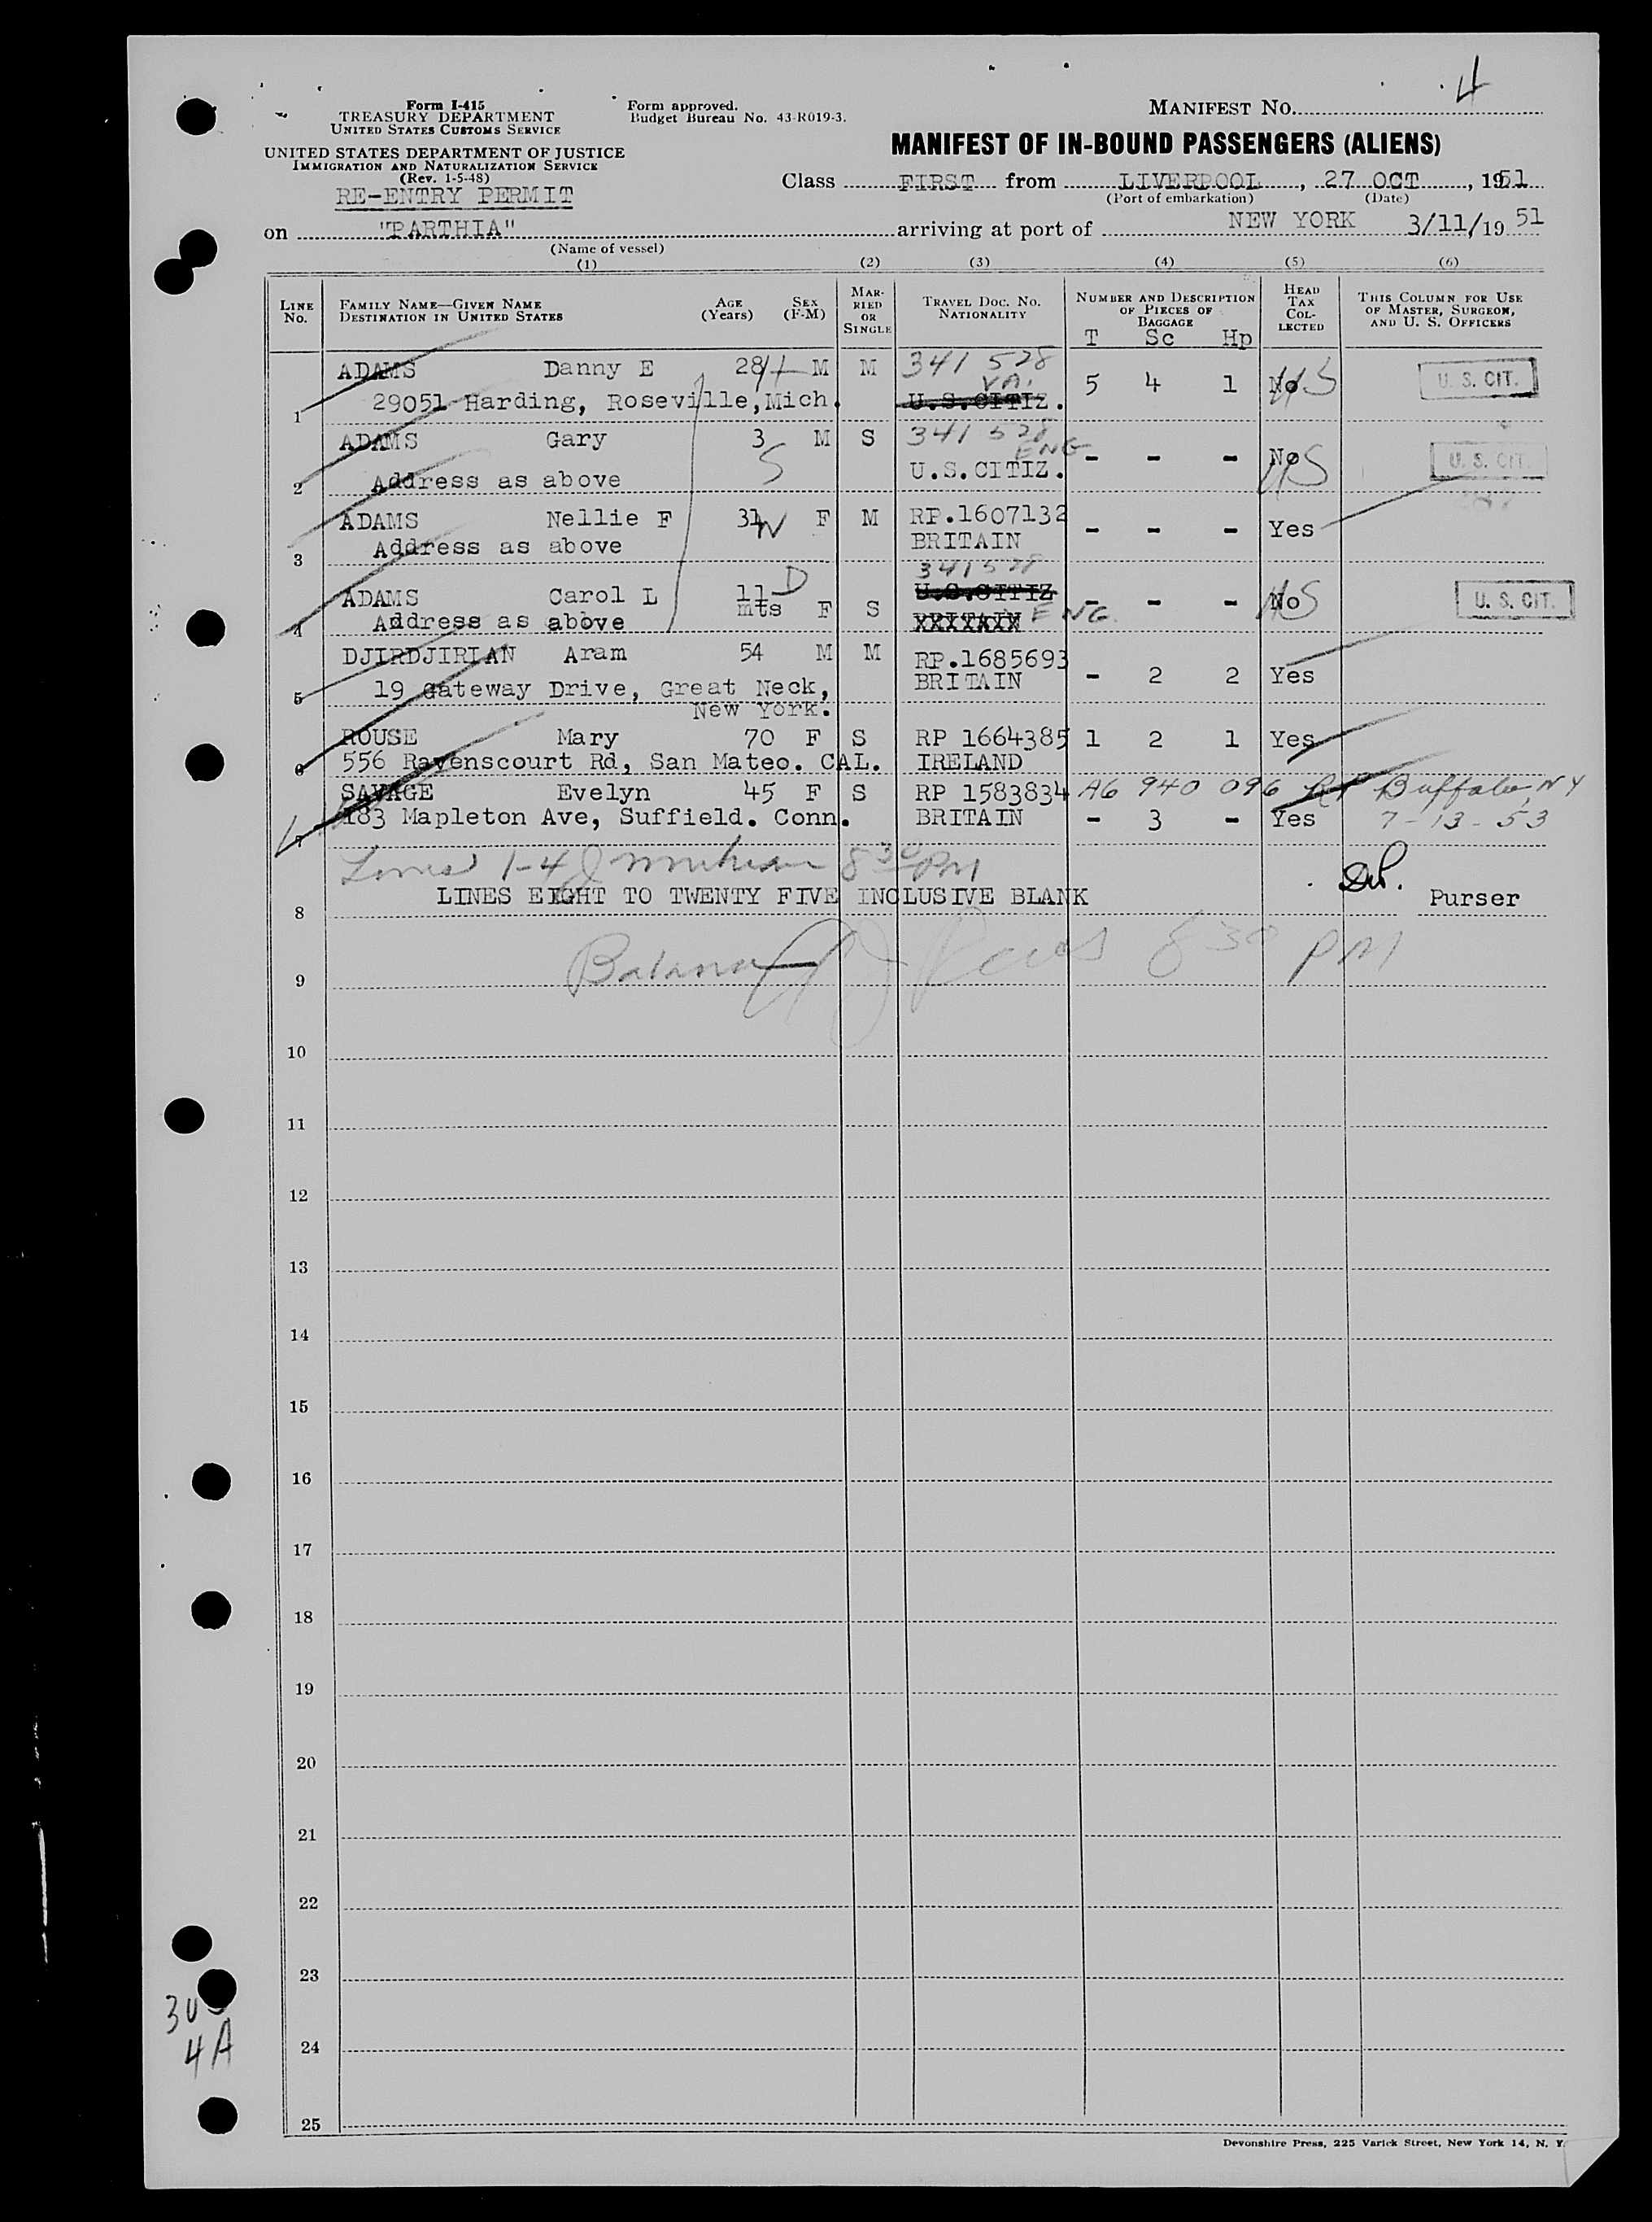 4
Form I-415
TREASURY DEPARTMENT
UNITED STATES CUSTOMS SERVICE
Form approved.
Budget Bureau No. 43-R019-3.
MANIFEST NO.
UNITED STATES DEPARTMENT OF JUSTICE
IMMIGRATION AND NATURALIZATION SERVICE
(Rev. 1-5-48)
RE-ENTRY PERMIT
MANIFEST OF IN-BOUND PASSENGERS (ALIENS)
Class FIRST from LIVERPOOL, 27 OCT, 1951
(Port of embarkation) (Date)
on "PARTHIA" arriving at port of NEW YORK 3/11/1951
(Name of vessel)
(1) (2) (3) (4) (5) (6)
LINE No.
FAMILY NAME—GIVEN NAME
DESTINATION IN UNITED STATES
AGE (Years)
SEX (F-M)
MARRIED OR SINGLE
TRAVEL DOC. NO.
NATIONALITY
NUMBER AND DESCRIPTION OF PIECES OF BAGGAGE
T Sc Hp
HEAD TAX COLLECTED
THIS COLUMN FOR USE OF MASTER, SURGEON, AND U. S. OFFICERS
1 ADAMS Danny E 28 M M 341 528 5 4 1 No U. S. CIT.
29051 Harding, Roseville, Mich. VA. U.S.CITIZ.
2 ADAMS Gary 3 M S 341 528 ENG - - - No U. S. CIT.
Address as above S U.S.CITIZ.
3 ADAMS Nellie F 31 W F M RP.1607132 - - - Yes
Address as above BRITAIN
4 ADAMS Carol L 11 mts D F S 341528 U.S.CITIZ - - - No U. S. CIT.
Address as above BRITAIN ENG.
5 DJIRDJIRIAN Aram 54 M M RP.1685693 - 2 2 Yes
19 Gateway Drive, Great Neck, BRITAIN
New York.
6 ROUSE Mary 70 F S RP 1664385 1 2 1 Yes
556 Ravenscourt Rd, San Mateo. CAL. IRELAND
7 SAVAGE Evelyn 45 F S RP 1583834 A6 940 096 Buffalo, NY
183 Mapleton Ave, Suffield. Conn. BRITAIN - 3 - Yes 7-13-53
Lines 1-4 8 30 PM
8 LINES EIGHT TO TWENTY FIVE INCLUSIVE BLANK Purser
9 Balance 8 30 PM
10
11
12
13
14
15
16
17
18
19
20
21
22
23
24
4A
25
Devonshire Press, 225 Varick Street, New York 14, N. Y.